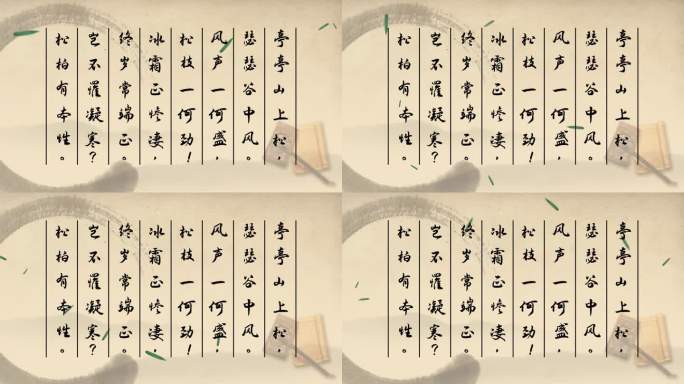 亭亭山上松，
瑟瑟谷中风。
风声一何盛，
松枝一何劲！
冰霜正惨凄，
终岁常端正。
岂不罹凝寒？
松柏有本性。
亭亭山上松，
瑟瑟谷中风。
风声一何盛，
松枝一何劲！
冰霜正惨凄，
终岁常端正。
岂不罹凝寒？
松柏有本性。
亭亭山上松，
瑟瑟谷中风。
风声一何盛，
松枝一何劲！
冰霜正惨凄，
终岁常端正。
岂不罹凝寒？
松柏有本性。
亭亭山上松，
瑟瑟谷中风。
风声一何盛，
松枝一何劲！
冰霜正惨凄，
终岁常端正。
岂不罹凝寒？
松柏有本性。